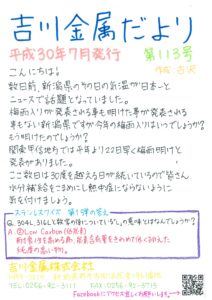 吉川金属だより
平成30年7月発行 第113号
こんにちは!
数日前、新潟県の今の日の気温が日本一と
ニュースで話題となっていました。
梅雨入りが発表される事も明けた事が発表される
事もない新潟県ですが今年の梅雨入りはいつでしょうか?
もう明けたのでしょうか?
関東甲信地方では平年より22日早く梅雨明けと
発表がありました。
ここ数日は30度を越える日が続いているので皆さん
水分補給をこまめにし熱中症にならないように
気を付けましょう。
ステンレスクイズ 第1弾の答え
Q. 304L、316Lと数字の後についている"L"の意味とはなんでしょうか?
A. ②Low Carbon(低炭素)
純度の高い物。
吉川金属株式会社
TEL:0256-92-3111 FAX:0256-92-3713